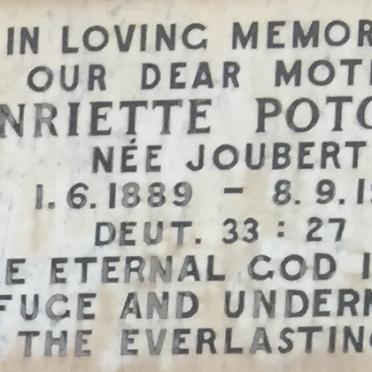 IN LOVING MEMOR
OUR DEAR MOT
NRIETTE POTG
NÉE JOUBERT
1.6.1889 – 8.9.1
DEUT. 33 : 27
E ETERNAL GOD I
FUGE AND UNDERN
THE EVERLASTING